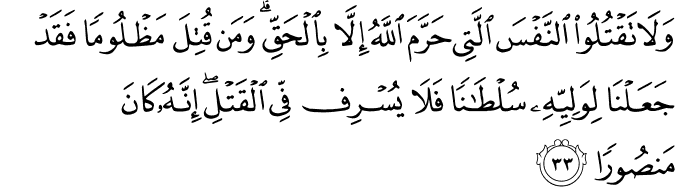 وَلَا تَقۡتُلُواْ ٱلنَّفۡسَ ٱلَّتِي حَرَّمَ ٱللَّهُ إِلَّا بِٱلۡحَقِّۗ وَمَن قُتِلَ مَظۡلُومٗا فَقَدۡ
جَعَلۡنَا لِوَلِيِّهِۦ سُلۡطَٰنٗا فَلَا يُسۡرِف فِّي ٱلۡقَتۡلِۖ إِنَّهُۥ كَانَ
مَنصُورٗا ٣٣